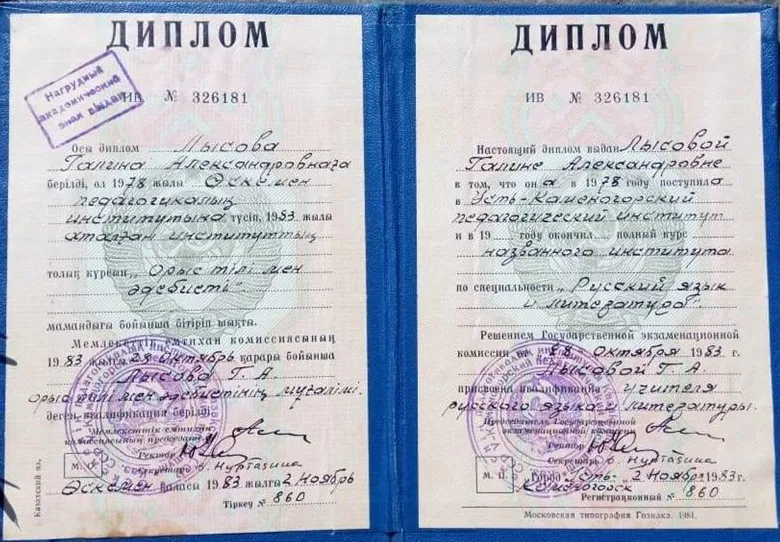 ДИПЛОМ
Нагрудный
академический
знак выдан
ИВ № 326181
Осы диплом Лысова
Галина Александровнаға
берілді, ол 1978 жылы Өскемен
педагогикалық
институтына түсіп, 1983 жылы
аталған институттың
толық курсын „Орыс тілі мен
әдебиеті"
мамандығы бойынша бітіріп шықты.
Мемлекеттік емтихан комиссиясының
1983 жылғы 28 Октябрь қарары бойынша
Лысова Г. А.
орыс тілі мен әдебиетінің мұғалімі
деген квалификация берілді
Мемлекеттік емтихан
комиссиясының председателі
Ректор
Секретарь
М. О.
Өскемен қаласы 1983 жылғы 2 Ноябрь
Тіркеу № 860
Казахский яз.
ДИПЛОМ
ИВ № 326181
Настоящий диплом выдан Лысовой
Галине Александровне
в том, что она в 1978 году поступила
в Усть-Каменогорский
педагогический институт
и в 19 году окончил полный курс
названного института
по специальности „Русский язык
и литература"
Решением Государственной экзаменационной
комиссии от 28 октября 1983 г.
Лысовой Г. А.
присвоена квалификация учителя
русского языка и литературы.
Председатель Государственной
экзаменационной комиссии
Ректор
Секретарь
М. П. Город Усть- 2 Ноября 1983 г.
Каменогорск
Регистрационный № 860
Московская типография Гознака. 1981.